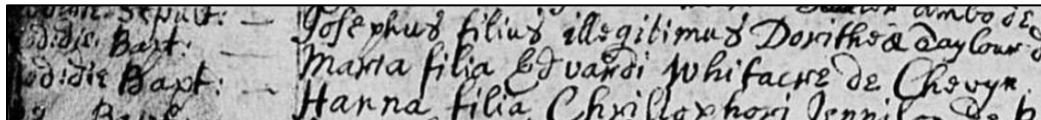 Sepult: — ambo de
od: die Bapt: — Josephus filius illegitimus Doritheæ Taylour
od: die Bapt: — Maria filia Edvardi Whitacre de Chevyn.
Hanna filia Christophori de